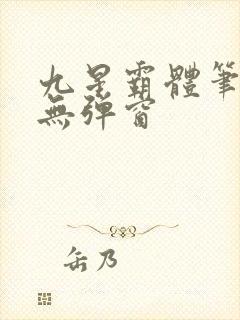 九星霸體筆
無彈窗
缶乃